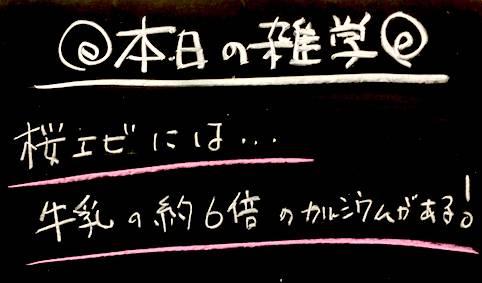 @本日の雑学@
桜エビには...
牛乳の約6倍のカルシウムがある!